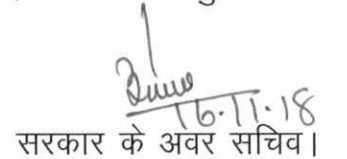 16.11.18
सरकार के अवर सचिव।